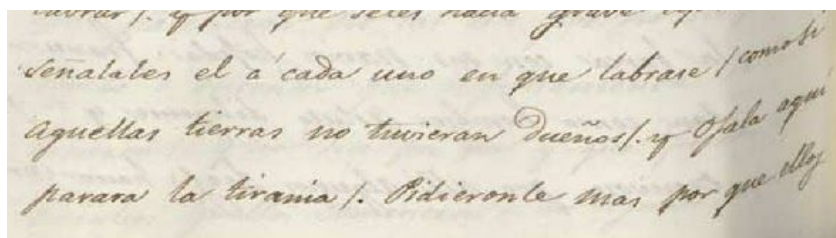 labrar/. y por que seles hacia grave
señalales el a cada uno en que labrase / como si
aquellas tierras no tuvieran Dueños/. y Ojala aqui
parara la tirania /. Pidieronle mas por que ellos